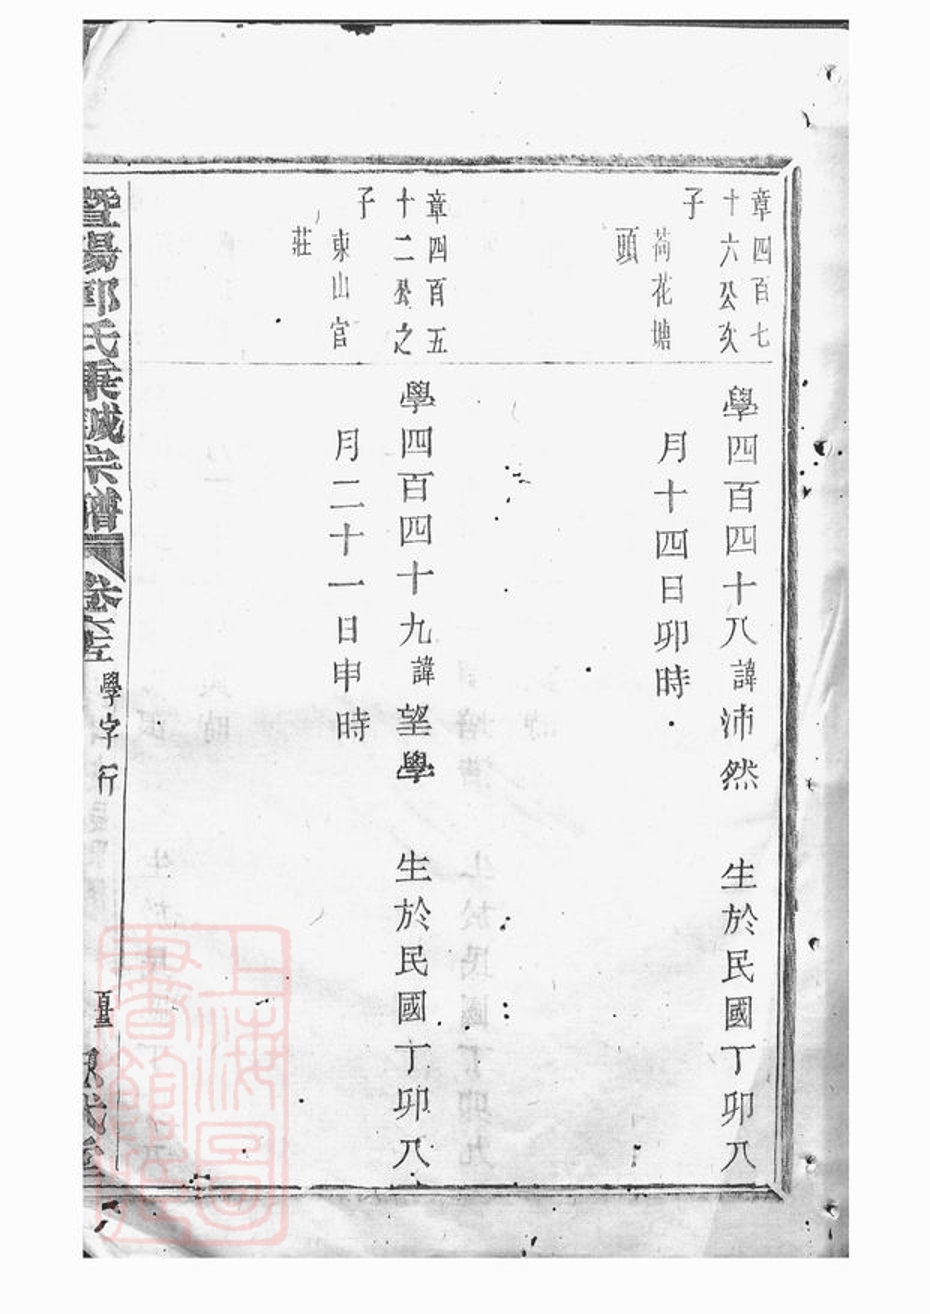 章四百七
十六公次
子
荷花塘
頭
學四百四十八諱沛然 生於民國丁卯八
月十四日卯時
章四百五
十二公之
子
東山官
莊
學四百四十九諱望學 生於民國丁卯八
月二十一日申時
暨陽郭氏秉誠宗譜 卷六 學字行
上海圖書館藏